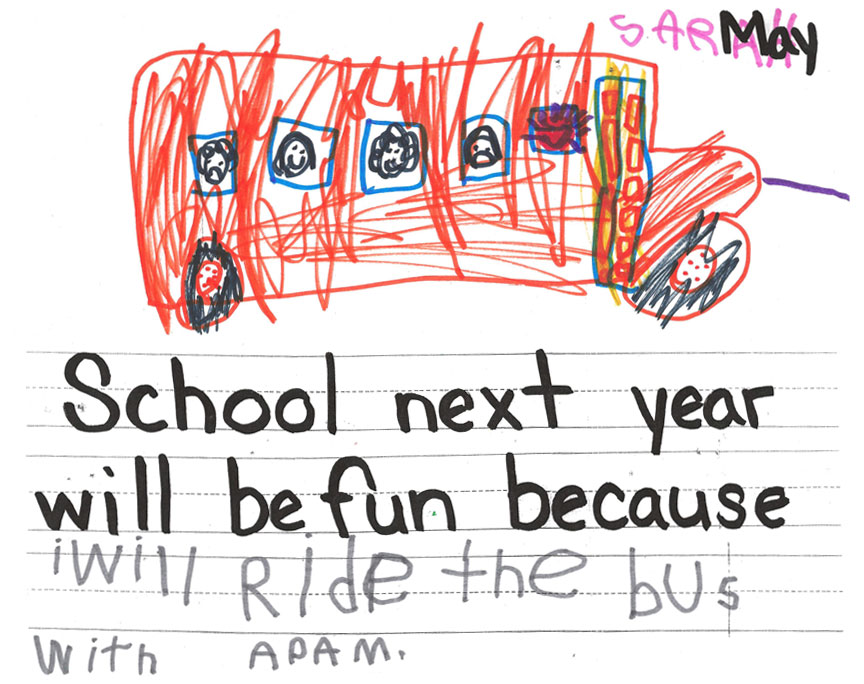 SARAH May
School next year
will be fun because
i will Ride the bus
with ADAM.